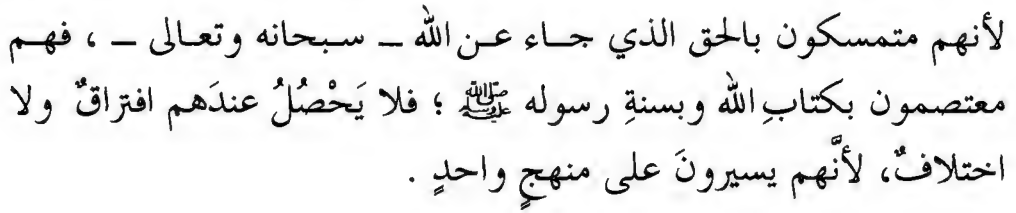 لأنهم متمسكون بالحق الذي جاء عن الله _ سبحانه وتعالى _ ، فهم
معتصمون بكتابِ الله وبسنةِ رسوله ﷺ ؛ فلا يَحْصُلُ عندَهم افتراقٌ ولا
اختلافٌ، لأنَّهم يسيرونَ على منهجٍ واحدٍ .